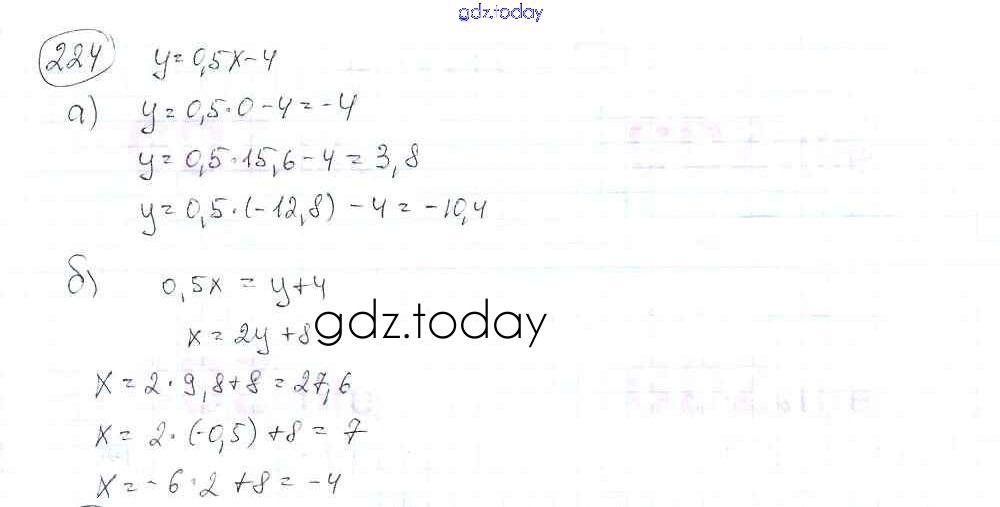 gdz.today
224 y=0,5x-4
а) y=0,5·0-4=-4
y=0,5·15,6-4=3,8
y=0,5·(-12,8)-4=-10,4
б) 0,5x=y+4
x=2y+8 gdz.today
x=2·9,8+8=27,6
x=2·(-0,5)+8=7
x=-6·2+8=-4